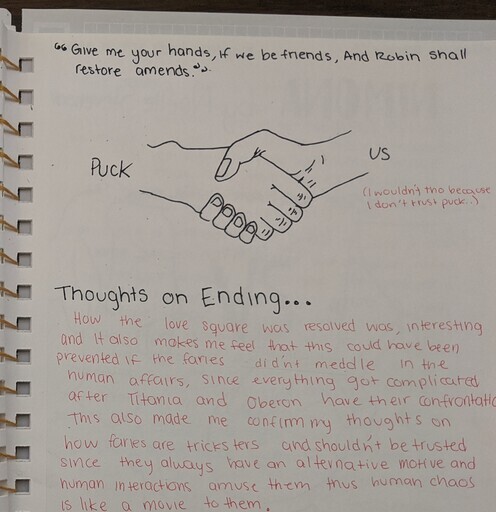 "Give me your hands, if we be friends, And Robin shall
restore amends.".
Puck
US
(I wouldn't tho because
I don't trust puck..)
Thoughts on Ending...
How the love square was resolved was, interesting
and it also makes me feel that this could have been
prevented if the faries didn't meddle in the
human affairs, since everything got complicated
after Titania and Oberon have their confrontatio
This also made me confirm my thoughts on
how faries are tricksters and shouldn't be trusted
since they always have an alternative motive and
human interactions amuse them thus human chaos
is like a movie to them.